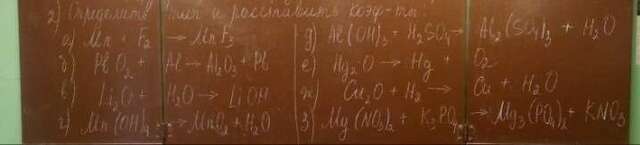 2) Определить тип и расставить коэф-ты.
а) Mn + F₂ → MnF₃
б) PbO₂ + Al → Al₂O₃ + Pb
в) Li₂O + H₂O → LiOH
г) Mn(OH)₄ → MnO₂ + H₂O
д) Al(OH)₃ + H₂SO₄ → Al₂(SO₄)₃ + H₂O
е) Hg₂O → Hg + O₂
ж) Cu₂O + H₂ → Cu + H₂O
з) Mg(NO₃)₂ + K₃PO₄ → Mg₃(PO₄)₂ + KNO₃